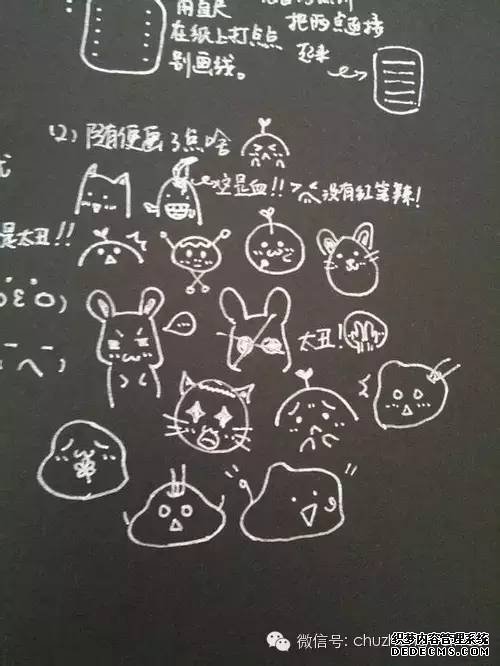 用直尺
在纸上打点点
别画线。
把两点连接
起来
(2) 随便画了点啥
这是血!! 没有红笔辣!
是太丑!!
太丑!
微信号: chuzh
织梦内容管理系统
DEDECMS.COM